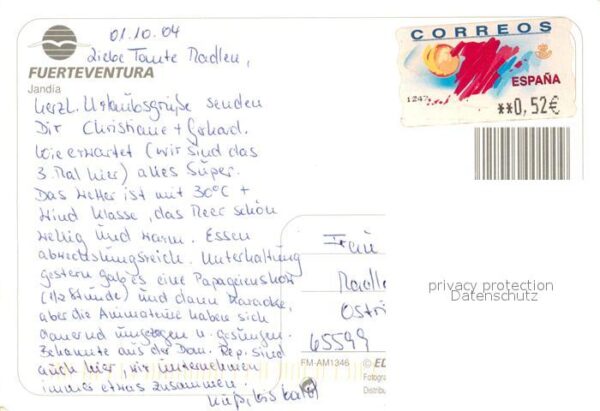 01.10.04
Liebe Tante Madlen,
FUERTEVENTURA
Jandía
herzl. Urlaubsgrüße senden
Dir Christiane + Gerhard.
Wie erwartet (wir sind das
3. Mal hier) alles Super.
Das Wetter ist mit 30°C +
Wind klasse, das Meer schön
wellig und warm. Essen
abwechslungsreich. Unterhaltung
gestern gab es eine Papageienshow
(1/2 Stunde) und dann Karaoke,
aber die Animateure haben sich
dauernd umgezogen u. gesungen.
Bekannte aus der Dom. Rep. sind
auch hier, wir unternehmen
immer etwas zusammen.
bis bald
CORREOS
ESPAÑA
1247
**0,52€
Frau
Madlen
Ostri
65599
privacy protection
Datenschutz
FM-AM1346
© ED
Fotogra
Distribu